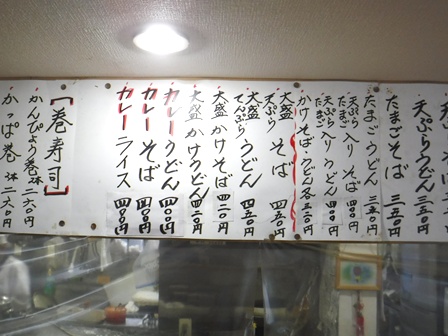 天ぷらうどん 三五〇円
たまごそば 三五〇円
たまごうどん 三五〇円
天ぷら たまご 入り そば 四〇〇円
天ぷら たまご 入り うどん 四〇〇円
かけそば・うどん各 三〇〇円
大盛 天ぷら そば 四五〇円
大盛 てんぷら うどん 四五〇円
大盛 かけそば 四二〇円
大盛 かけうどん 四二〇円
カレーうどん 四〇〇円
カレーそば 四〇〇円
カレーライス 四〇〇円
[巻寿司]
かんぴょう巻 2本 二六〇円
かっぱ巻 2本 二六〇円